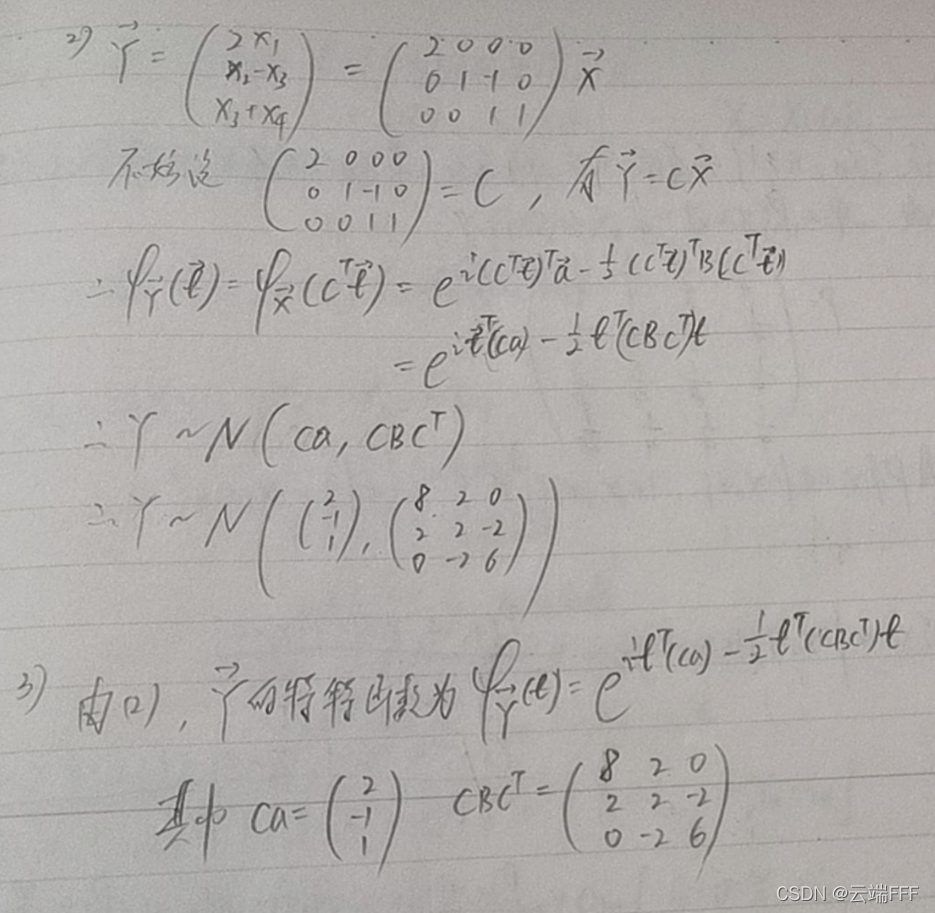 2) $\vec{Y} = \begin{pmatrix} 2x_1 \\ x_2 - x_3 \\ x_3 + x_4 \end{pmatrix} = \begin{pmatrix} 2 & 0 & 0 & 0 \\ 0 & 1 & -1 & 0 \\ 0 & 0 & 1 & 1 \end{pmatrix} \vec{X}$
不妨设 $\begin{pmatrix} 2 & 0 & 0 & 0 \\ 0 & 1 & -1 & 0 \\ 0 & 0 & 1 & 1 \end{pmatrix} = C$ , 有 $\vec{Y} = C\vec{X}$
∴ $\varphi_{\vec{Y}}(\vec{t}) = \varphi_{\vec{X}}(C^T\vec{t}) = e^{i(C^T\vec{t})^T\vec{a} - \frac{1}{2}(C^T\vec{t})^T B(C^T\vec{t})}$
$= e^{i\vec{t}^T(Ca) - \frac{1}{2}t^T(CBC^T)t}$
∴ $Y \sim N(Ca, CBC^T)$
∴ $Y \sim N\left(\begin{pmatrix} 2 \\ -1 \\ 1 \end{pmatrix}, \begin{pmatrix} 8 & 2 & 0 \\ 2 & 2 & -2 \\ 0 & -2 & 6 \end{pmatrix}\right)$
3) 由(2), $\vec{Y}$的特征函数为 $\varphi_{\vec{Y}}(t) = e^{it^T(Ca) - \frac{1}{2}t^T(CBC^T)t}$
其中 $Ca = \begin{pmatrix} 2 \\ -1 \\ 1 \end{pmatrix}$ $CBC^T = \begin{pmatrix} 8 & 2 & 0 \\ 2 & 2 & -2 \\ 0 & -2 & 6 \end{pmatrix}$
CSDN @云端FFF